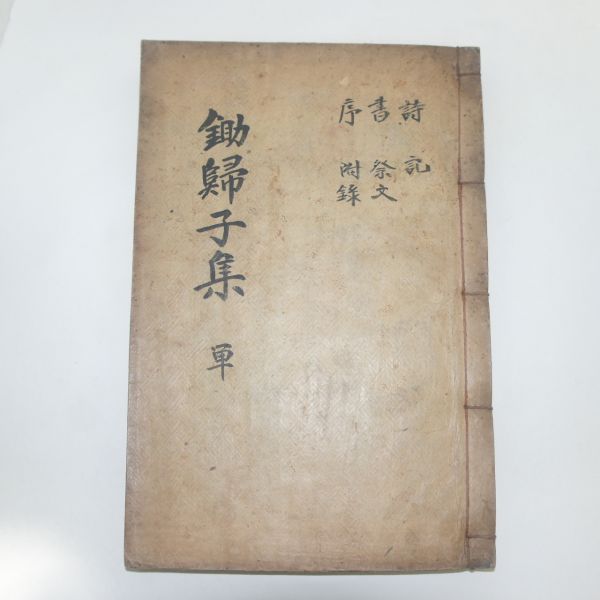 詩 記
書 祭文
序 附錄
鋤歸子集 単